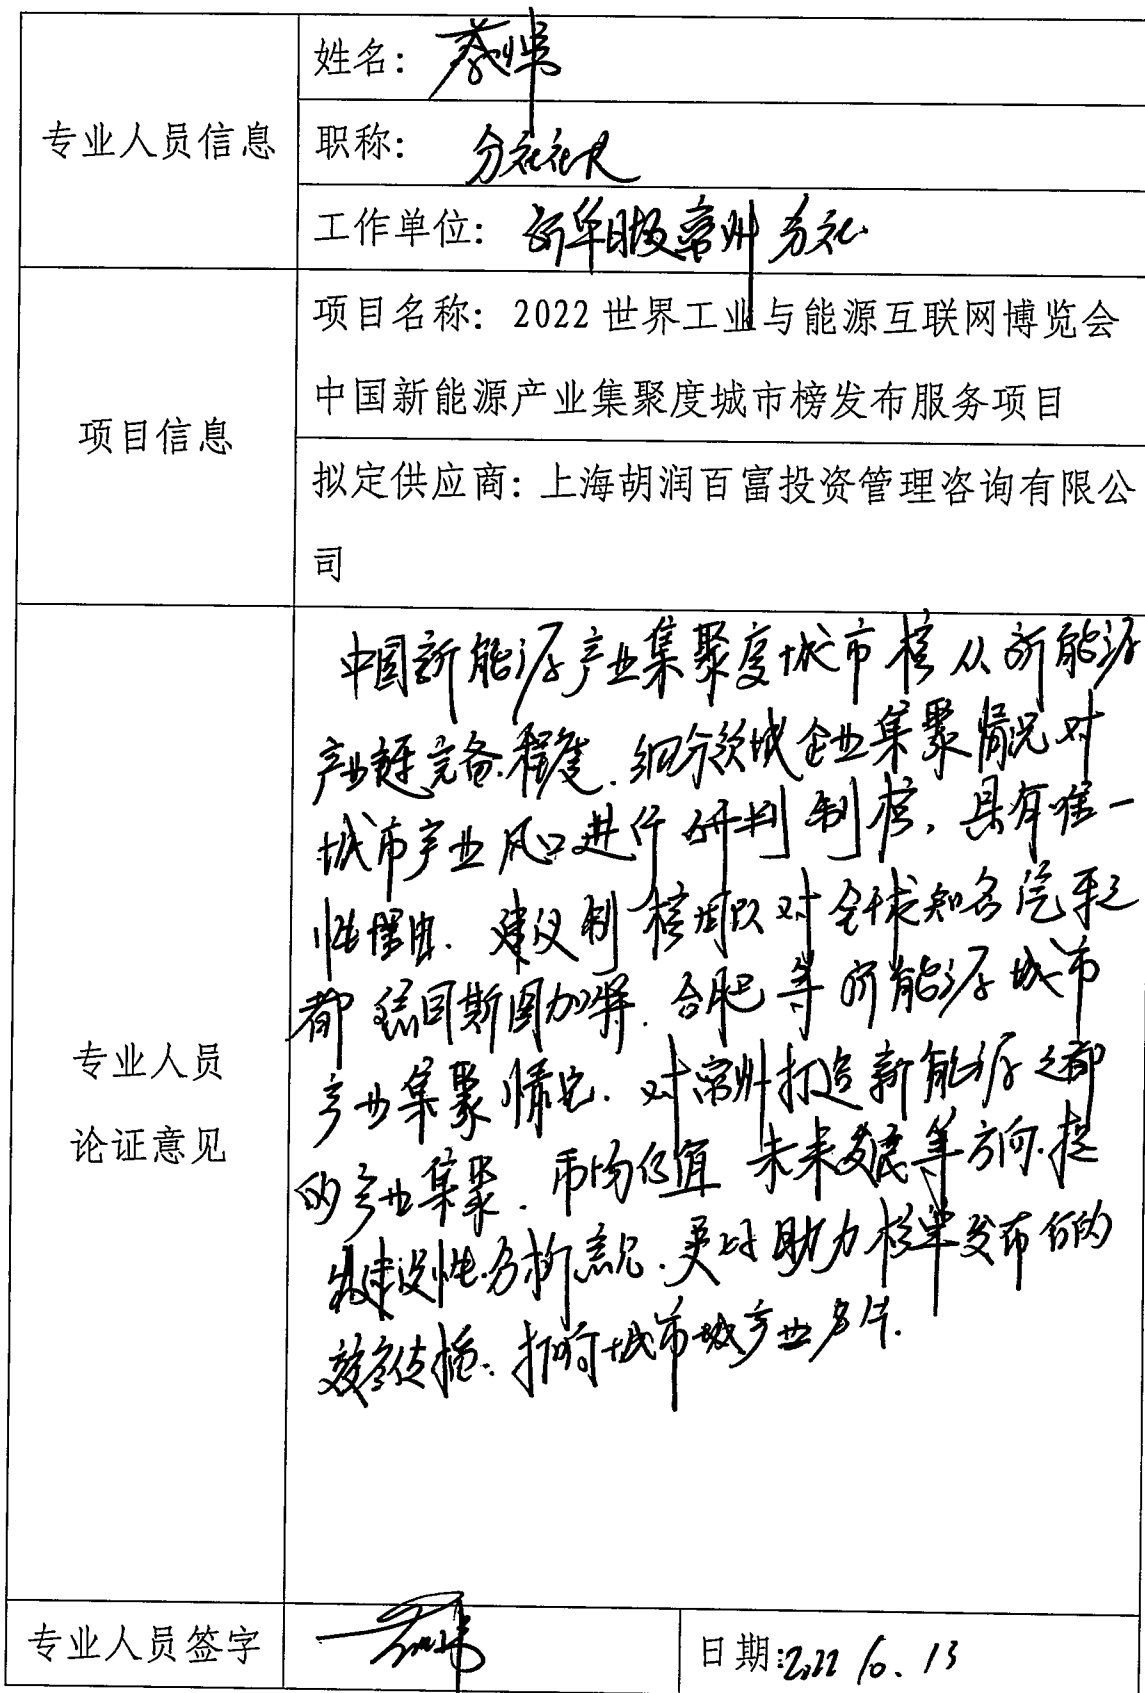 专业人员信息
姓名：蔡炜
职称：分社社长
工作单位：新华日报常州分社
项目信息
项目名称：2022世界工业与能源互联网博览会
中国新能源产业集聚度城市榜发布服务项目
拟定供应商：上海胡润百富投资管理咨询有限公
司
专业人员
论证意见
中国新能源产业集聚度城市榜从新能源
产业链完备程度、细分领域企业集聚情况对
城市产业风口进行研判制榜，具有唯一
性。建议制榜团队对全球知名汽车之
都 斯图加特、合肥等新能源城市
产业集聚情况，对常州打造新能源之都
的产业集聚、市场价值、未来发展等方向，提
建设性分析意见，更好助力榜单发布后的
传播，打响城市产业名片。
专业人员签字
日期：2022.10.13